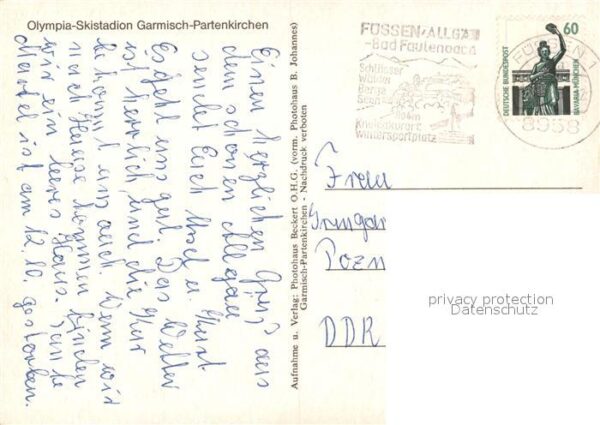 Olympia-Skistadion Garmisch-Partenkirchen
Einen herzlichen Gruß aus
dem schönen Allgäu
sendet Euch u. Kurt
Es geht uns gut. Das Wetter
ist herrlich, und die Kur
bekommt uns auch. Wenn wir
nach Hause kommen finden
wir ein leeres Haus. Tante
ist am 12. 10. gestorben.
Aufnahme u. Verlag: Photohaus Beckert O.H.G. (vorm. Photohaus B. Johannes)
Garmisch-Partenkirchen - Nachdruck verboten
FÜSSEN/ALLGÄ
-Bad Faulenbach
Schlösser
Wälder
Berge
Seen
Kneippkurort
Wintersportplatz
60
DEUTSCHE BUNDESPOST
BAVARIA MÜNCHEN
FÜSSEN 1
8958
Frau
Irmgar
Pozn
DDR
privacy protection
Datenschutz